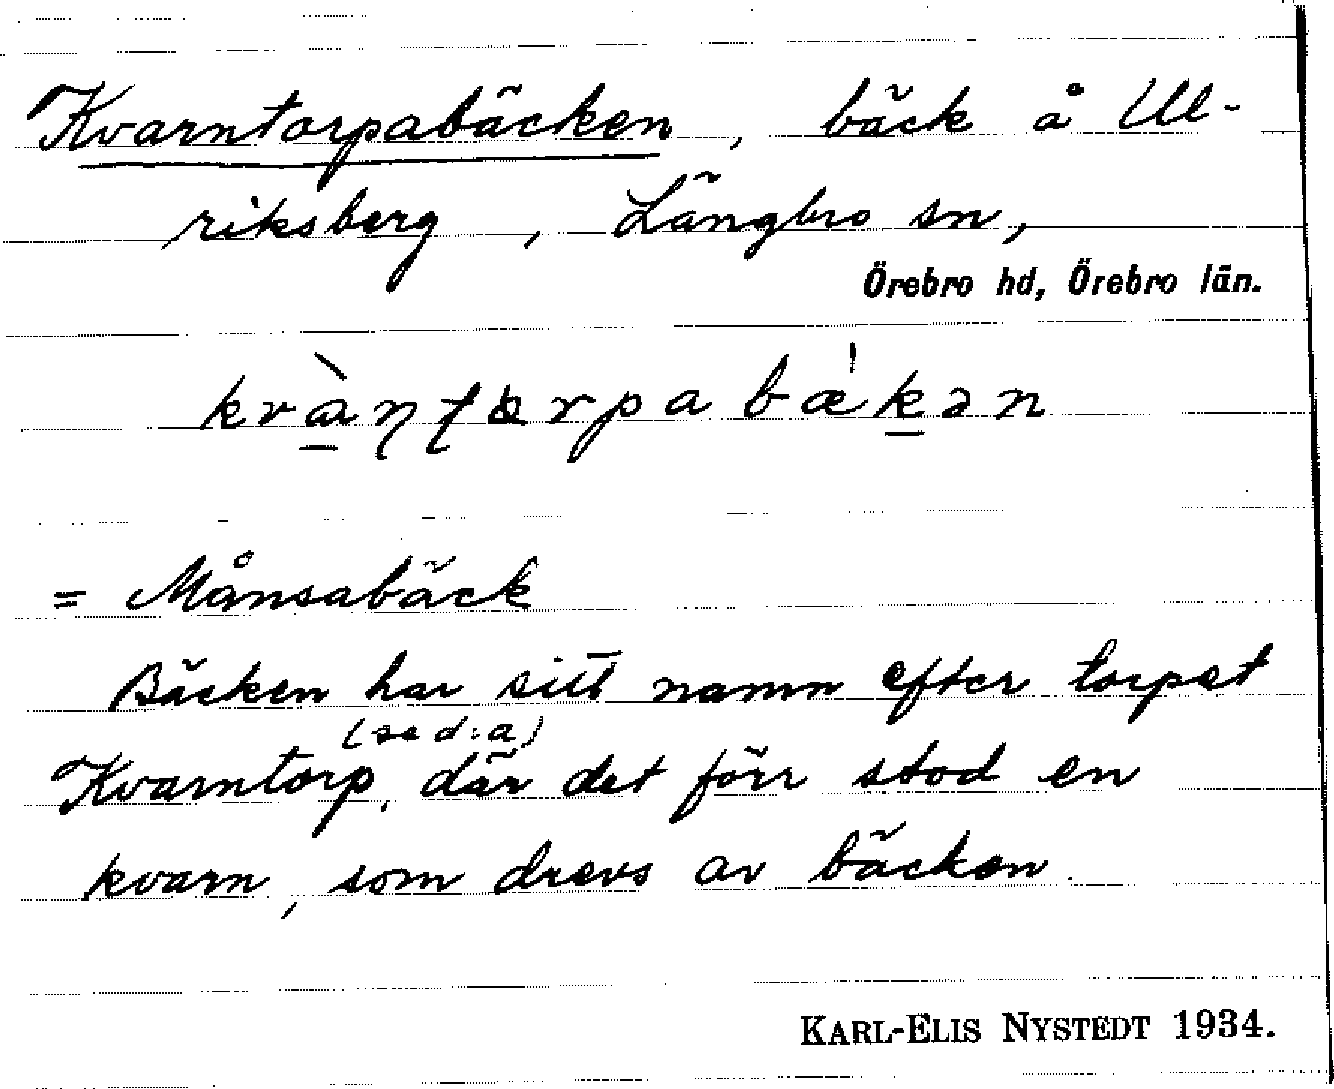 Kvarntorpabäcken, bäck å Ul-
riksberg, Längbro sn,
Örebro hd, Örebro län.
= Månsabäck
Bäcken har sitt namn efter torpet
(se d:a)
Kvarntorp, där det förr stod en
kvarn, som drevs av bäcken.
KARL-ELIS NYSTEDT 1934.